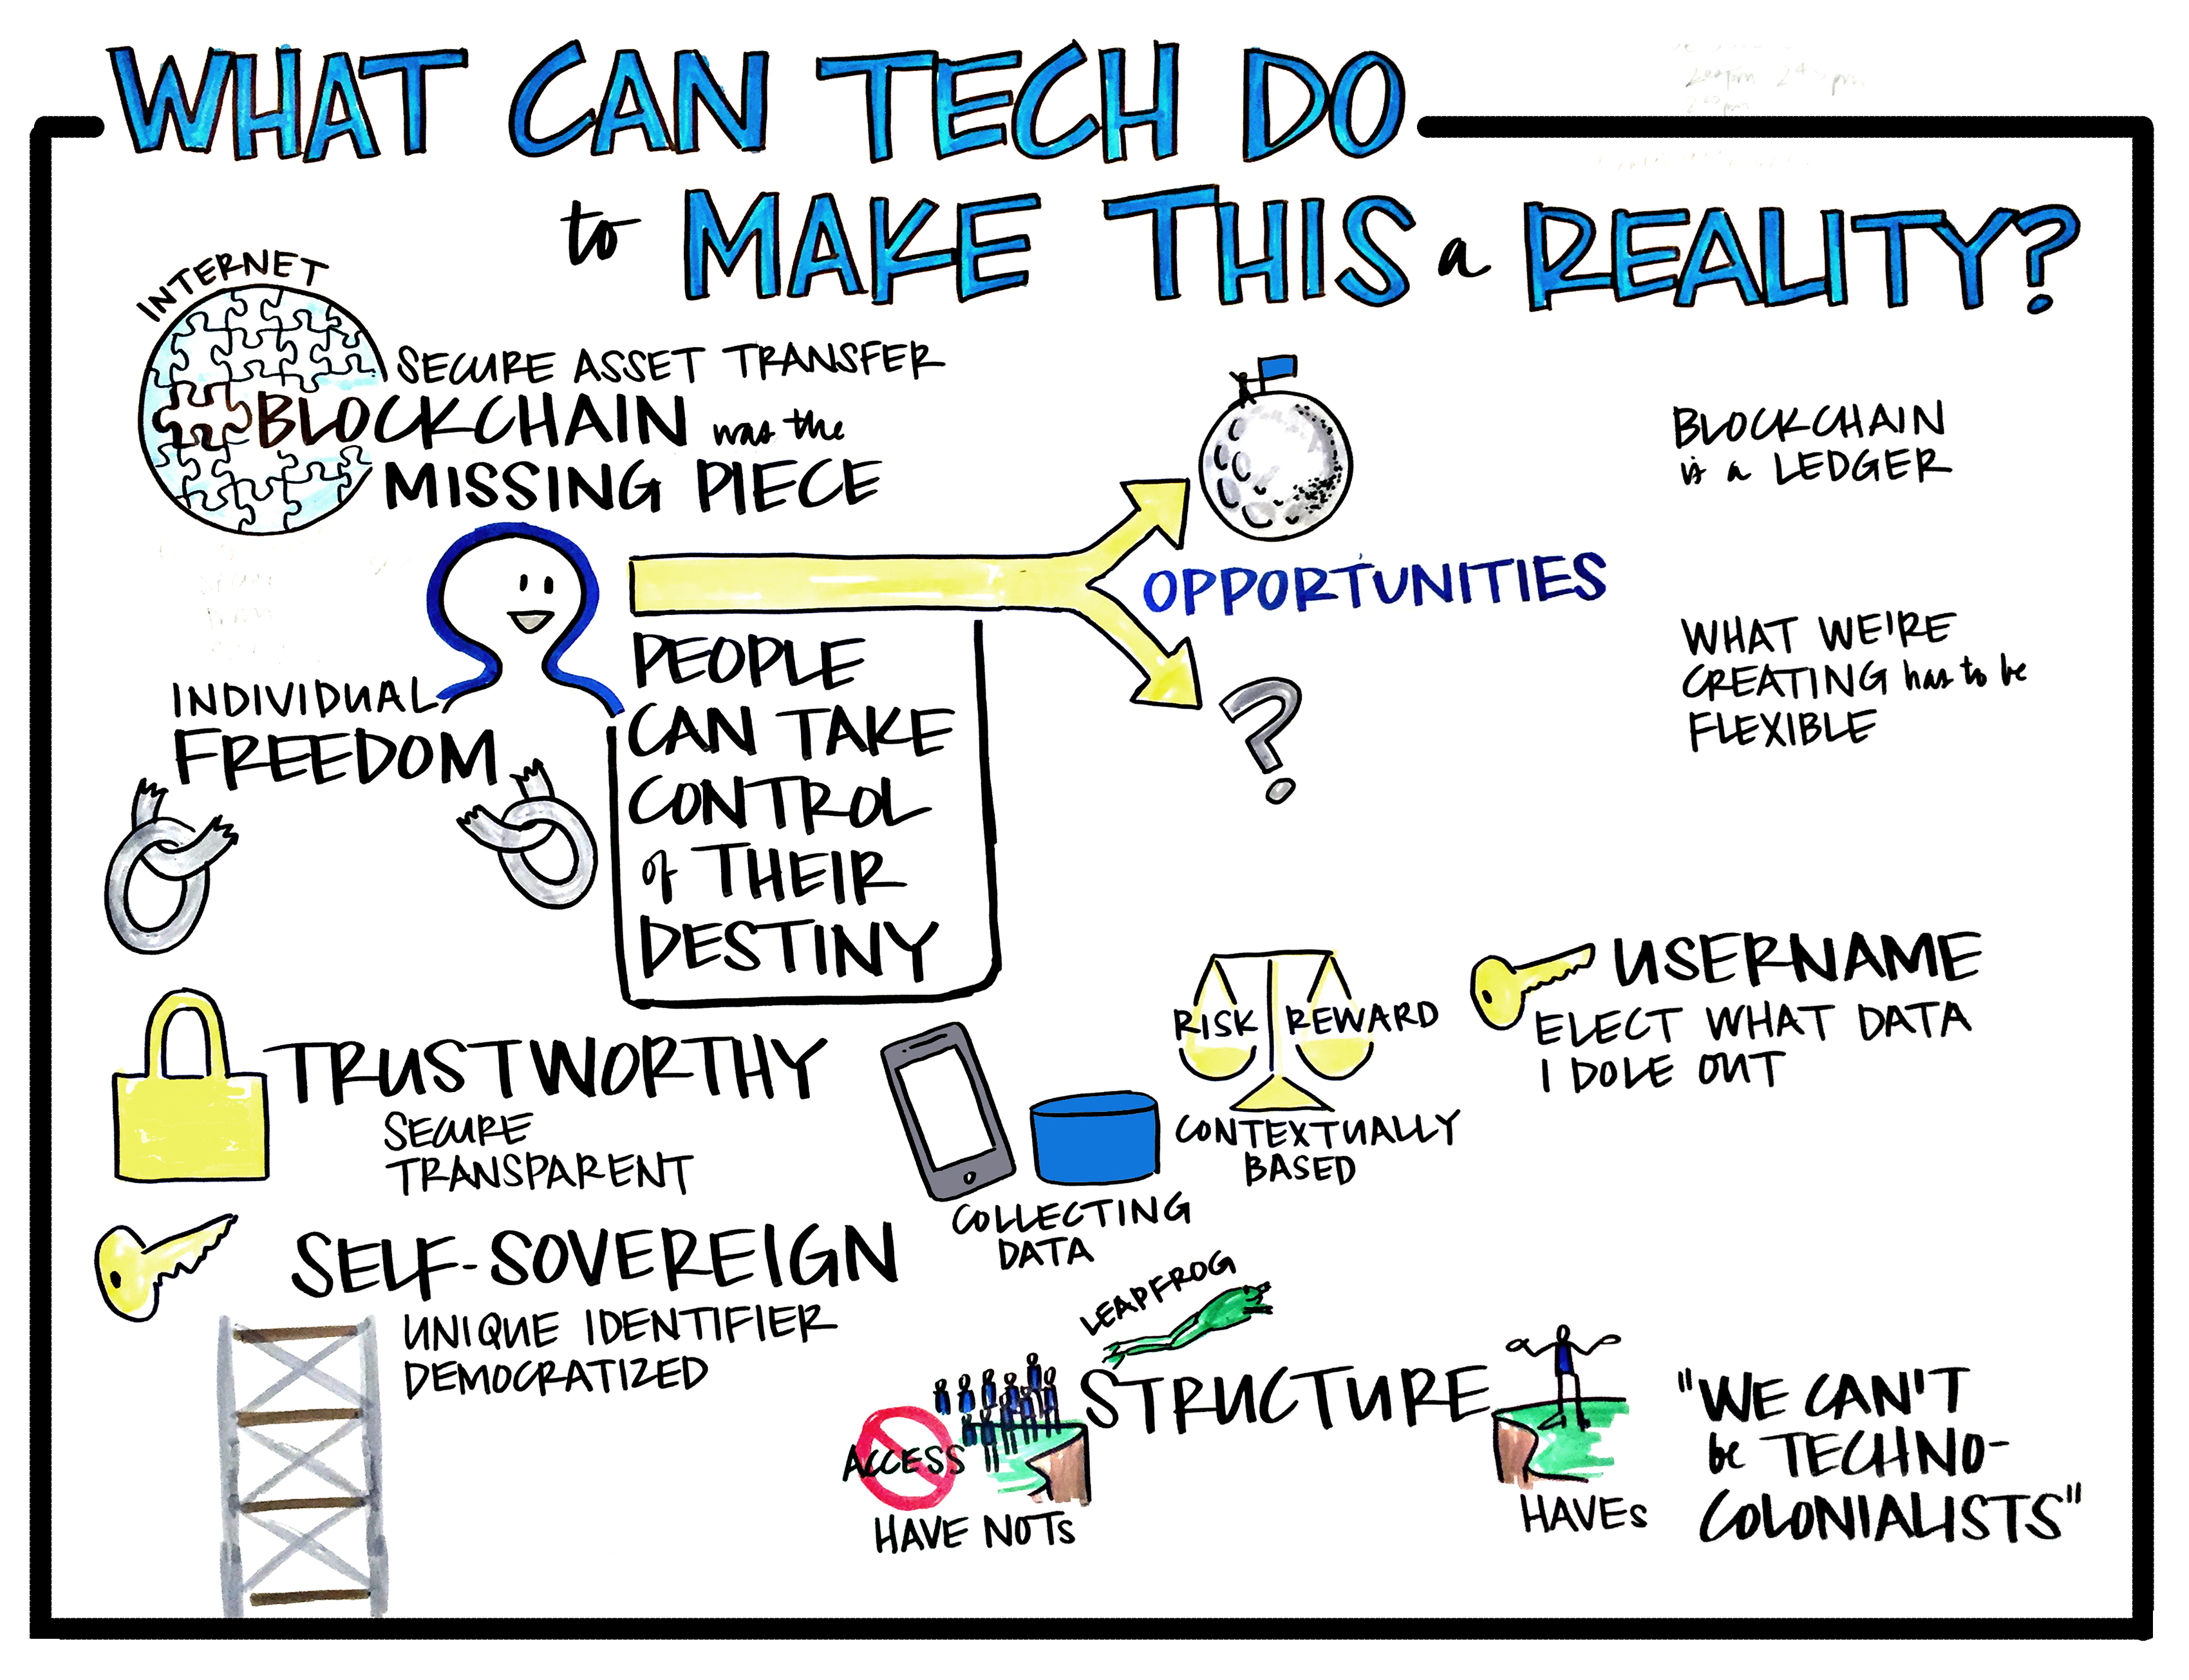 WHAT CAN TECH DO
to MAKE THIS a REALITY?
INTERNET
SECURE ASSET TRANSFER
BLOCKCHAIN was the
MISSING PIECE
BLOCKCHAIN
is a LEDGER
OPPORTUNITIES
WHAT WE'RE
CREATING has to be
FLEXIBLE
INDIVIDUAL
FREEDOM
PEOPLE
CAN TAKE
CONTROL
of THEIR
DESTINY
?
TRUSTWORTHY
SECURE
TRANSPARENT
COLLECTING
DATA
RISK REWARD
CONTEXTUALLY
BASED
USERNAME
ELECT WHAT DATA
I DOLE OUT
SELF-SOVEREIGN
UNIQUE IDENTIFIER
DEMOCRATIZED
LEAPFROG
STRUCTURE
ACCESS
HAVE NOTs
HAVEs
"WE CAN'T
be TECHNO-
COLONIALISTS"